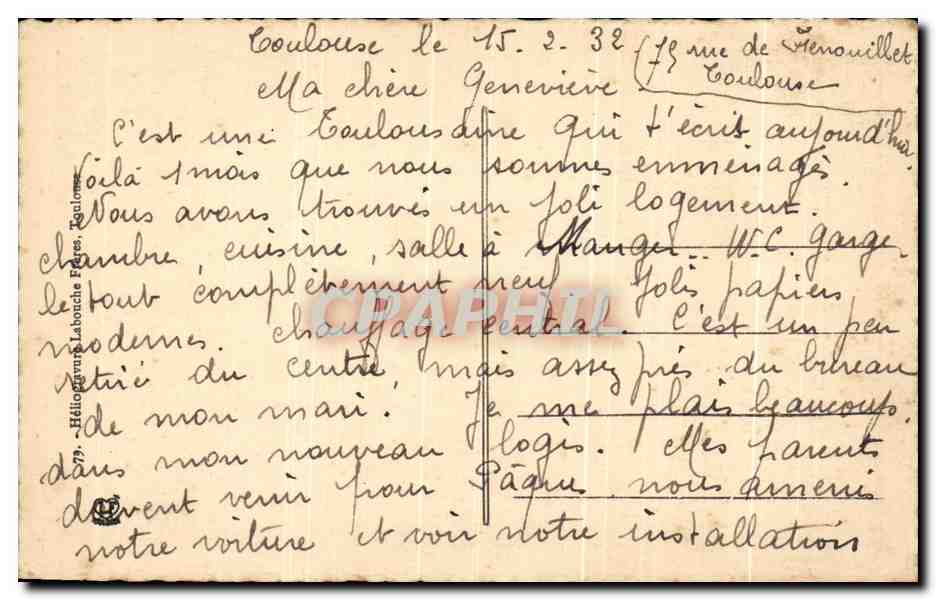 Toulouse le 15.2.32 (75 rue de Fenouillet
Toulouse
Ma chère Geneviève
C'est une Toulousaine qui t'écrit aujourd'hui.
Voilà 1 mois que nous sommes enménagés.
Nous avons trouvés un joli logement.
chambre, cuisine, salle à Manger.. W.C. garge
le tout complètement neuf Jolis papiers
modernes. chauffage central. C'est un peu
retiré du centre, mais assez près du bureau
de mon mari. Je me plais beaucoup.
dans mon nouveau logis. Mes parents
doivent venir pour Pâques nous amenis
notre voiture et voir notre installation
79. - Héliogravure Labouche Frères, Toulouse
CPAPHIL.com